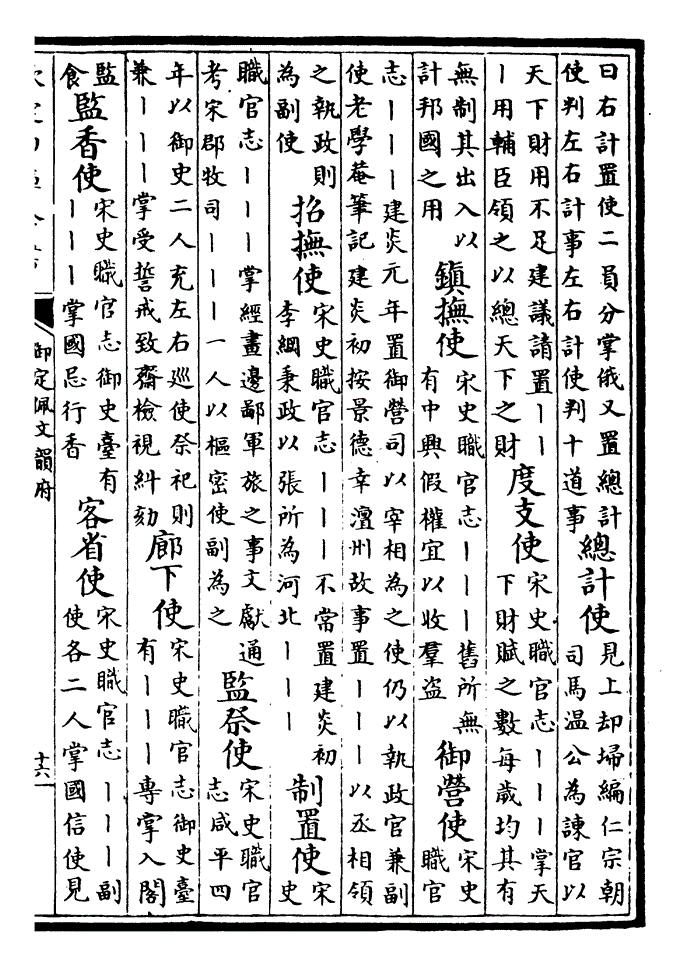 曰右計置使二員分掌俄又置總計
使判左右計事左右計使判十道事
總計使
見上却埽編仁宗朝
司馬温公為諫官以
天下財用不足建議請置丨丨
丨用輔臣領之以總天下之財
度支使
宋史職官志丨丨丨掌天
下財賦之數每歲均其有
無制其出入以
計邦國之用
鎮撫使
宋史職官志丨丨丨舊所無
有中興假權宜以收羣盜
御營使
宋史
職官
志丨丨丨建炎元年置御營司以宰相為之使仍以執政官兼副
使老學菴筆記建炎初按景德幸澶州故事置丨丨丨以丞相領
之執政則
為副使
招撫使
宋史職官志丨丨丨不常置建炎初
李綱秉政以張所為河北丨丨丨
制置使
宋
史
職官志丨丨丨掌經畫邊鄙軍旅之事文獻通
考宋郡牧司丨丨丨一人以樞密使副為之
監祭使
宋史職官
志咸平四
年以御史二人充左右巡使祭祀則
兼丨丨丨掌受誓戒致齋檢視糾劾
廊下使
宋史職官志御史臺
有丨丨丨專掌入閤
監
食
監香使
宋史職官志御史臺有
丨丨丨掌國忌行香
客省使
宋史職官志丨丨丨副
使各二人掌國信使見
御定佩文韻府
十六